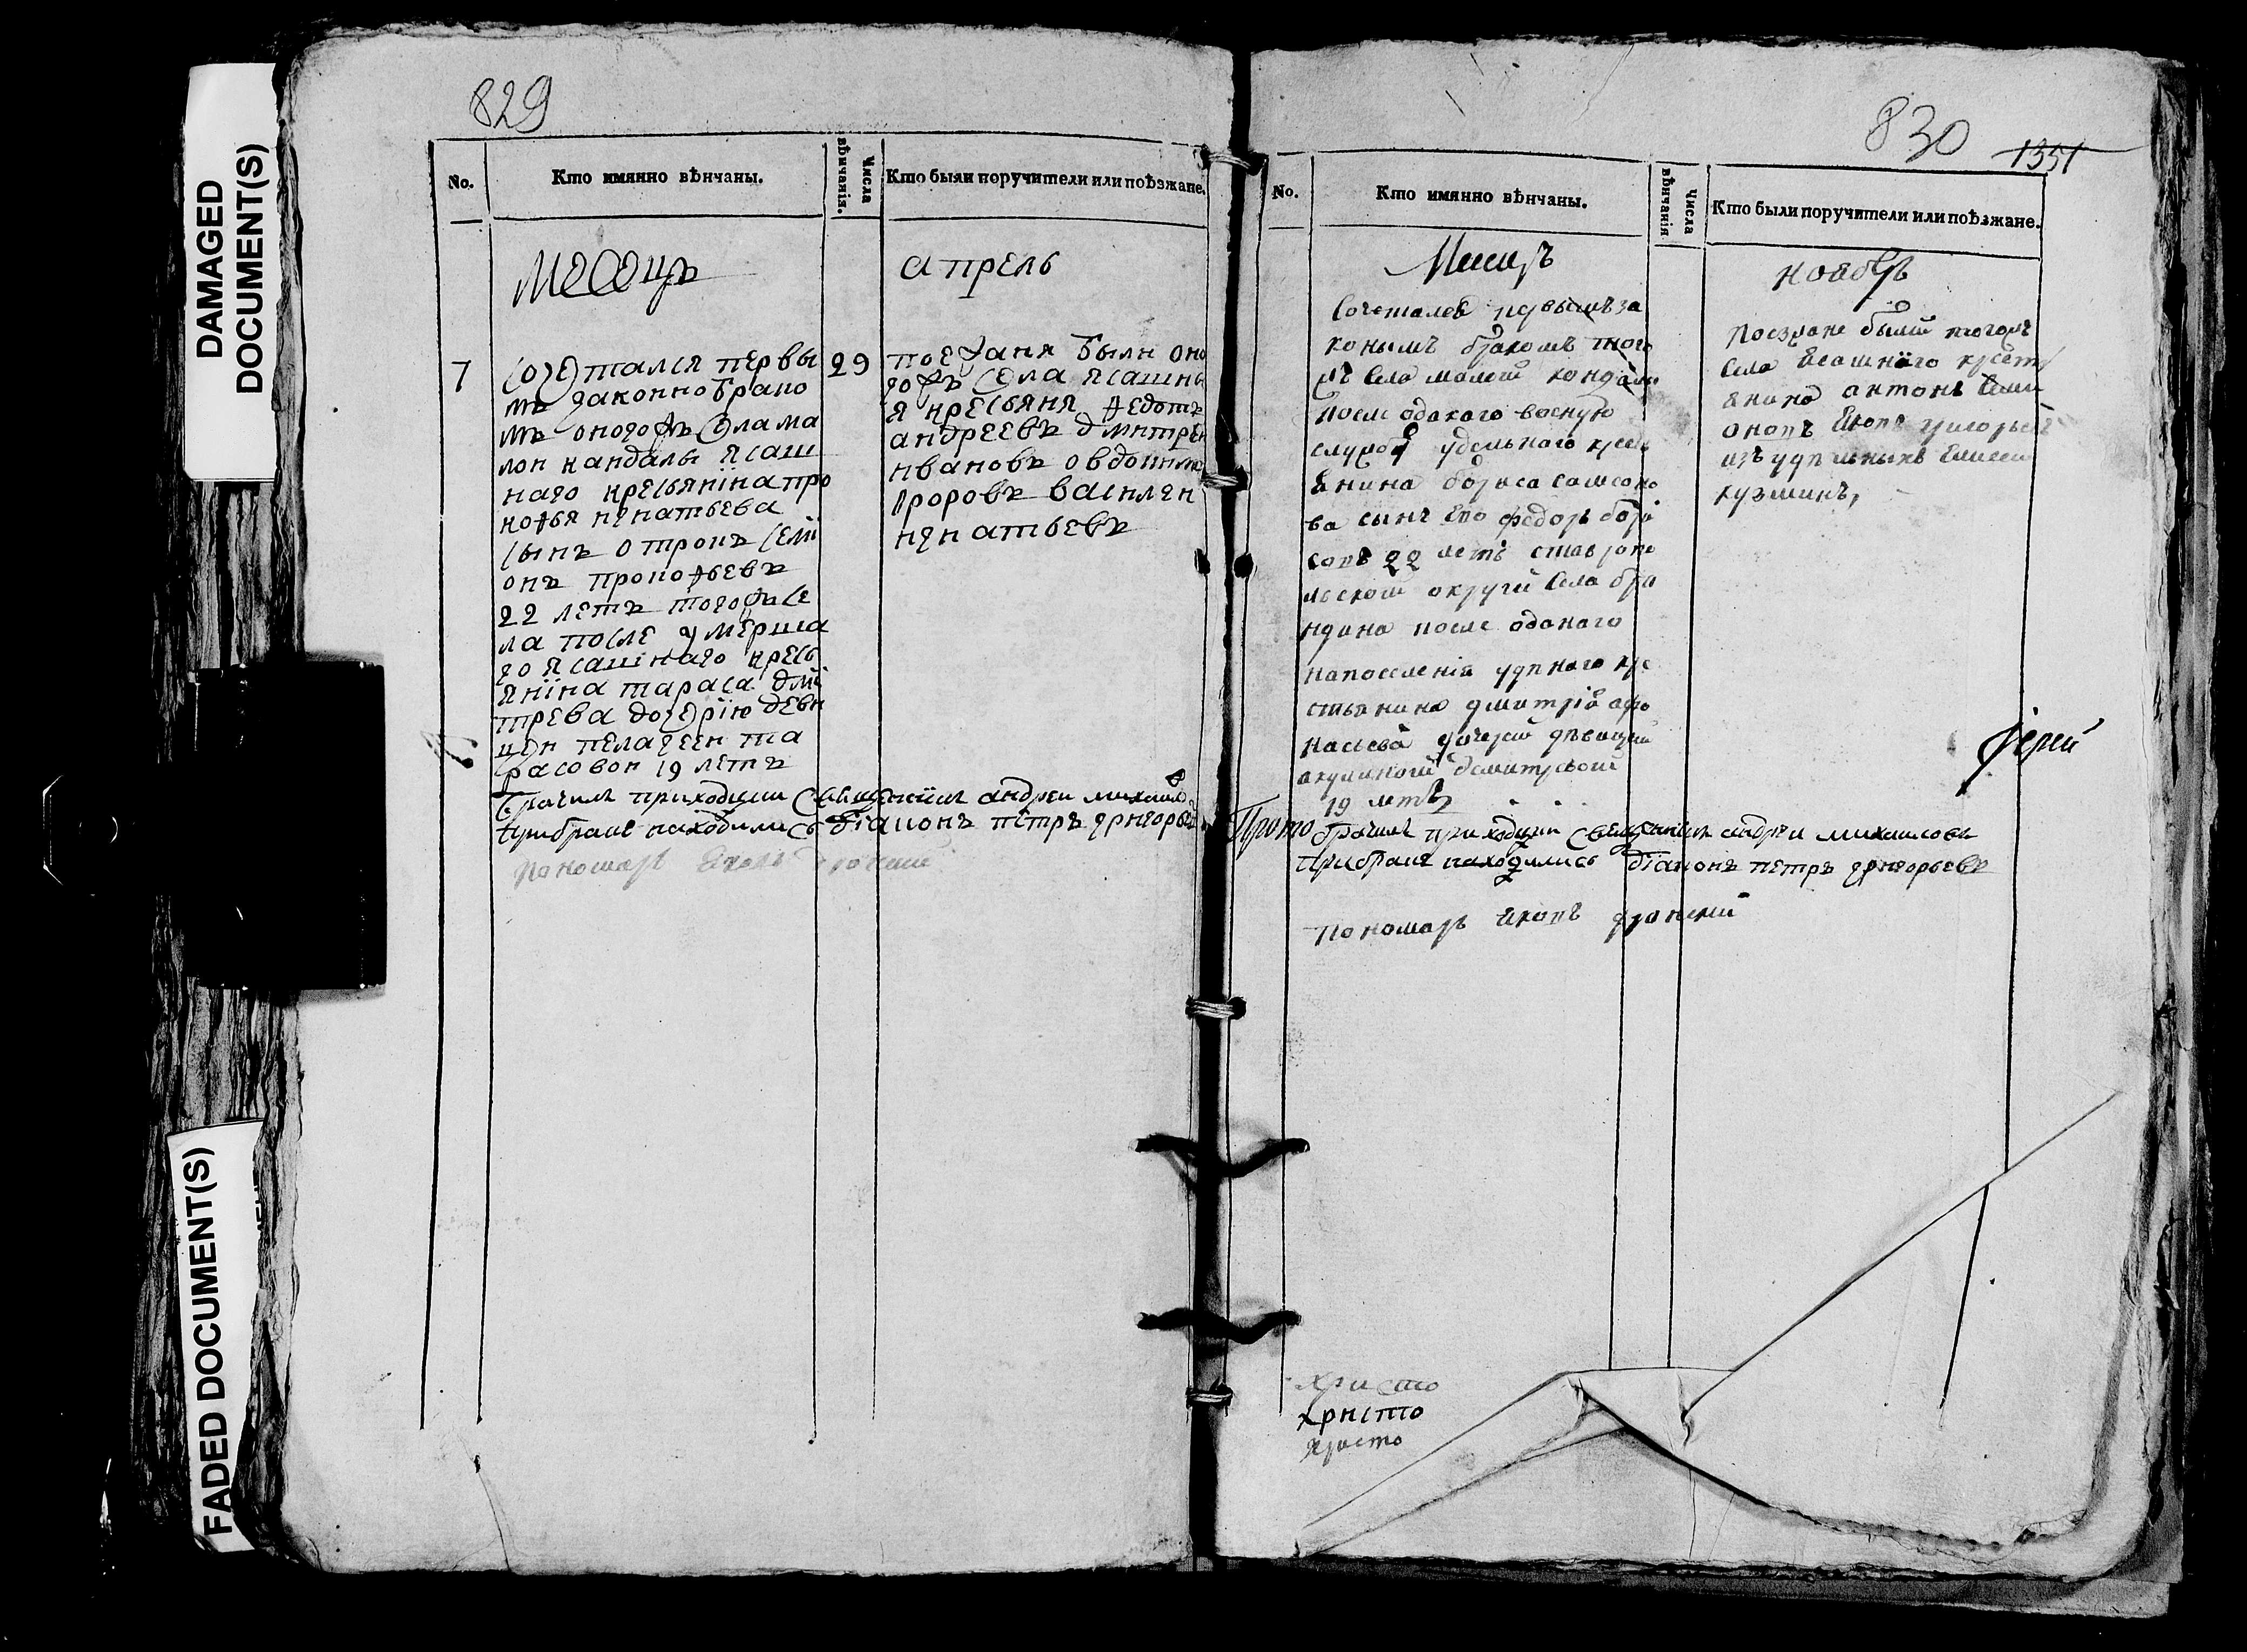 DAMAGED
DOCUMENT(S)
FADED DOCUMENT(S)
829
No.
Кто имянно вѣнчаны.
Числа
вѣнчанія.
Кто были поручители или поѣзжане.
месецъ
апрель
7
сочетался первы
мъ законно брако
мъ оногожъ села ма
лои кандалы ясаш
наго кресьянина про
кофья игнатьева
сынъ отрокъ семи
онъ прокофьевъ
22 летъ тогожъ се
ла после умерша
го ясашнаго кресь
янина тараса дми
трева дочерию деви
цеи пелагееи та
расовои 19 летъ
29
поежаня были оно
гожъ села ясашны
я кресьяня федотъ
андреевъ дмитреи
ивановъ овдоким
проровъ василеи
игнатьевъ
брачилъ приходции священникъ андреи михаило
при браке находились диаконъ петръ григорьевъ
пономарь
830
1351
No.
Кто имянно вѣнчаны.
Числа
вѣнчанія
Кто были поручители или поѣзжане.
Месецъ
ноябрь
Сочетался первымъ за
конымъ бракомъ того
жъ села малой кондалы
после отдакого воскую
службу удельнаго кресь
янина бориса самсоно
ва сынъ его федоръ бори
совъ 22 летъ ставропо
льской округи села бри
ндина после отданаго
на поселения уделнаго кре
стьянина дмитрия афо
насьева дочерью девицей
акулиной дмитревой
19 летъ
Поезжане были тогожъ
села ясашнаго кресть
янина антонъ семи
оновъ яковъ григорьевъ
изъ удельныхъ елисеи
кузминъ,
Иерей
Прото
брачилъ приходции священникъ андреи михаиловъ
При браке находились диаконъ петръ григорьевъ
Пономарь яковъ
Христо
христо
христо